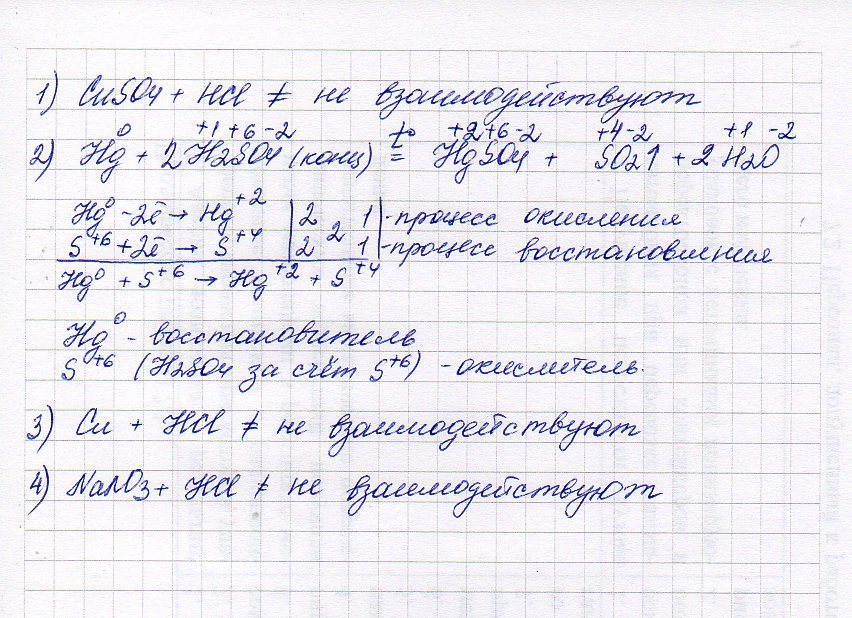 1) CuSO4 + HCl ≠ не взаимодействуют
0 +1 +6 -2 t° +2 +6 -2 +4 -2 +1 -2
2) Hg + 2 H2SO4 (конц) = HgSO4 + SO2↑ + 2 H2O
Hg⁰ - 2ē → Hg⁺² | 2 | 1 | - процесс окисления
2
S⁺⁶ + 2ē → S⁺⁴ | 2 | 1 | - процесс восстановления
Hg⁰ + S⁺⁶ → Hg⁺² + S⁺⁴
Hg⁰ - восстановитель
S⁺⁶ (H2SO4 за счёт S⁺⁶) - окислитель.
3) Cu + HCl ≠ не взаимодействуют
4) NaNO3 + HCl ≠ не взаимодействуют